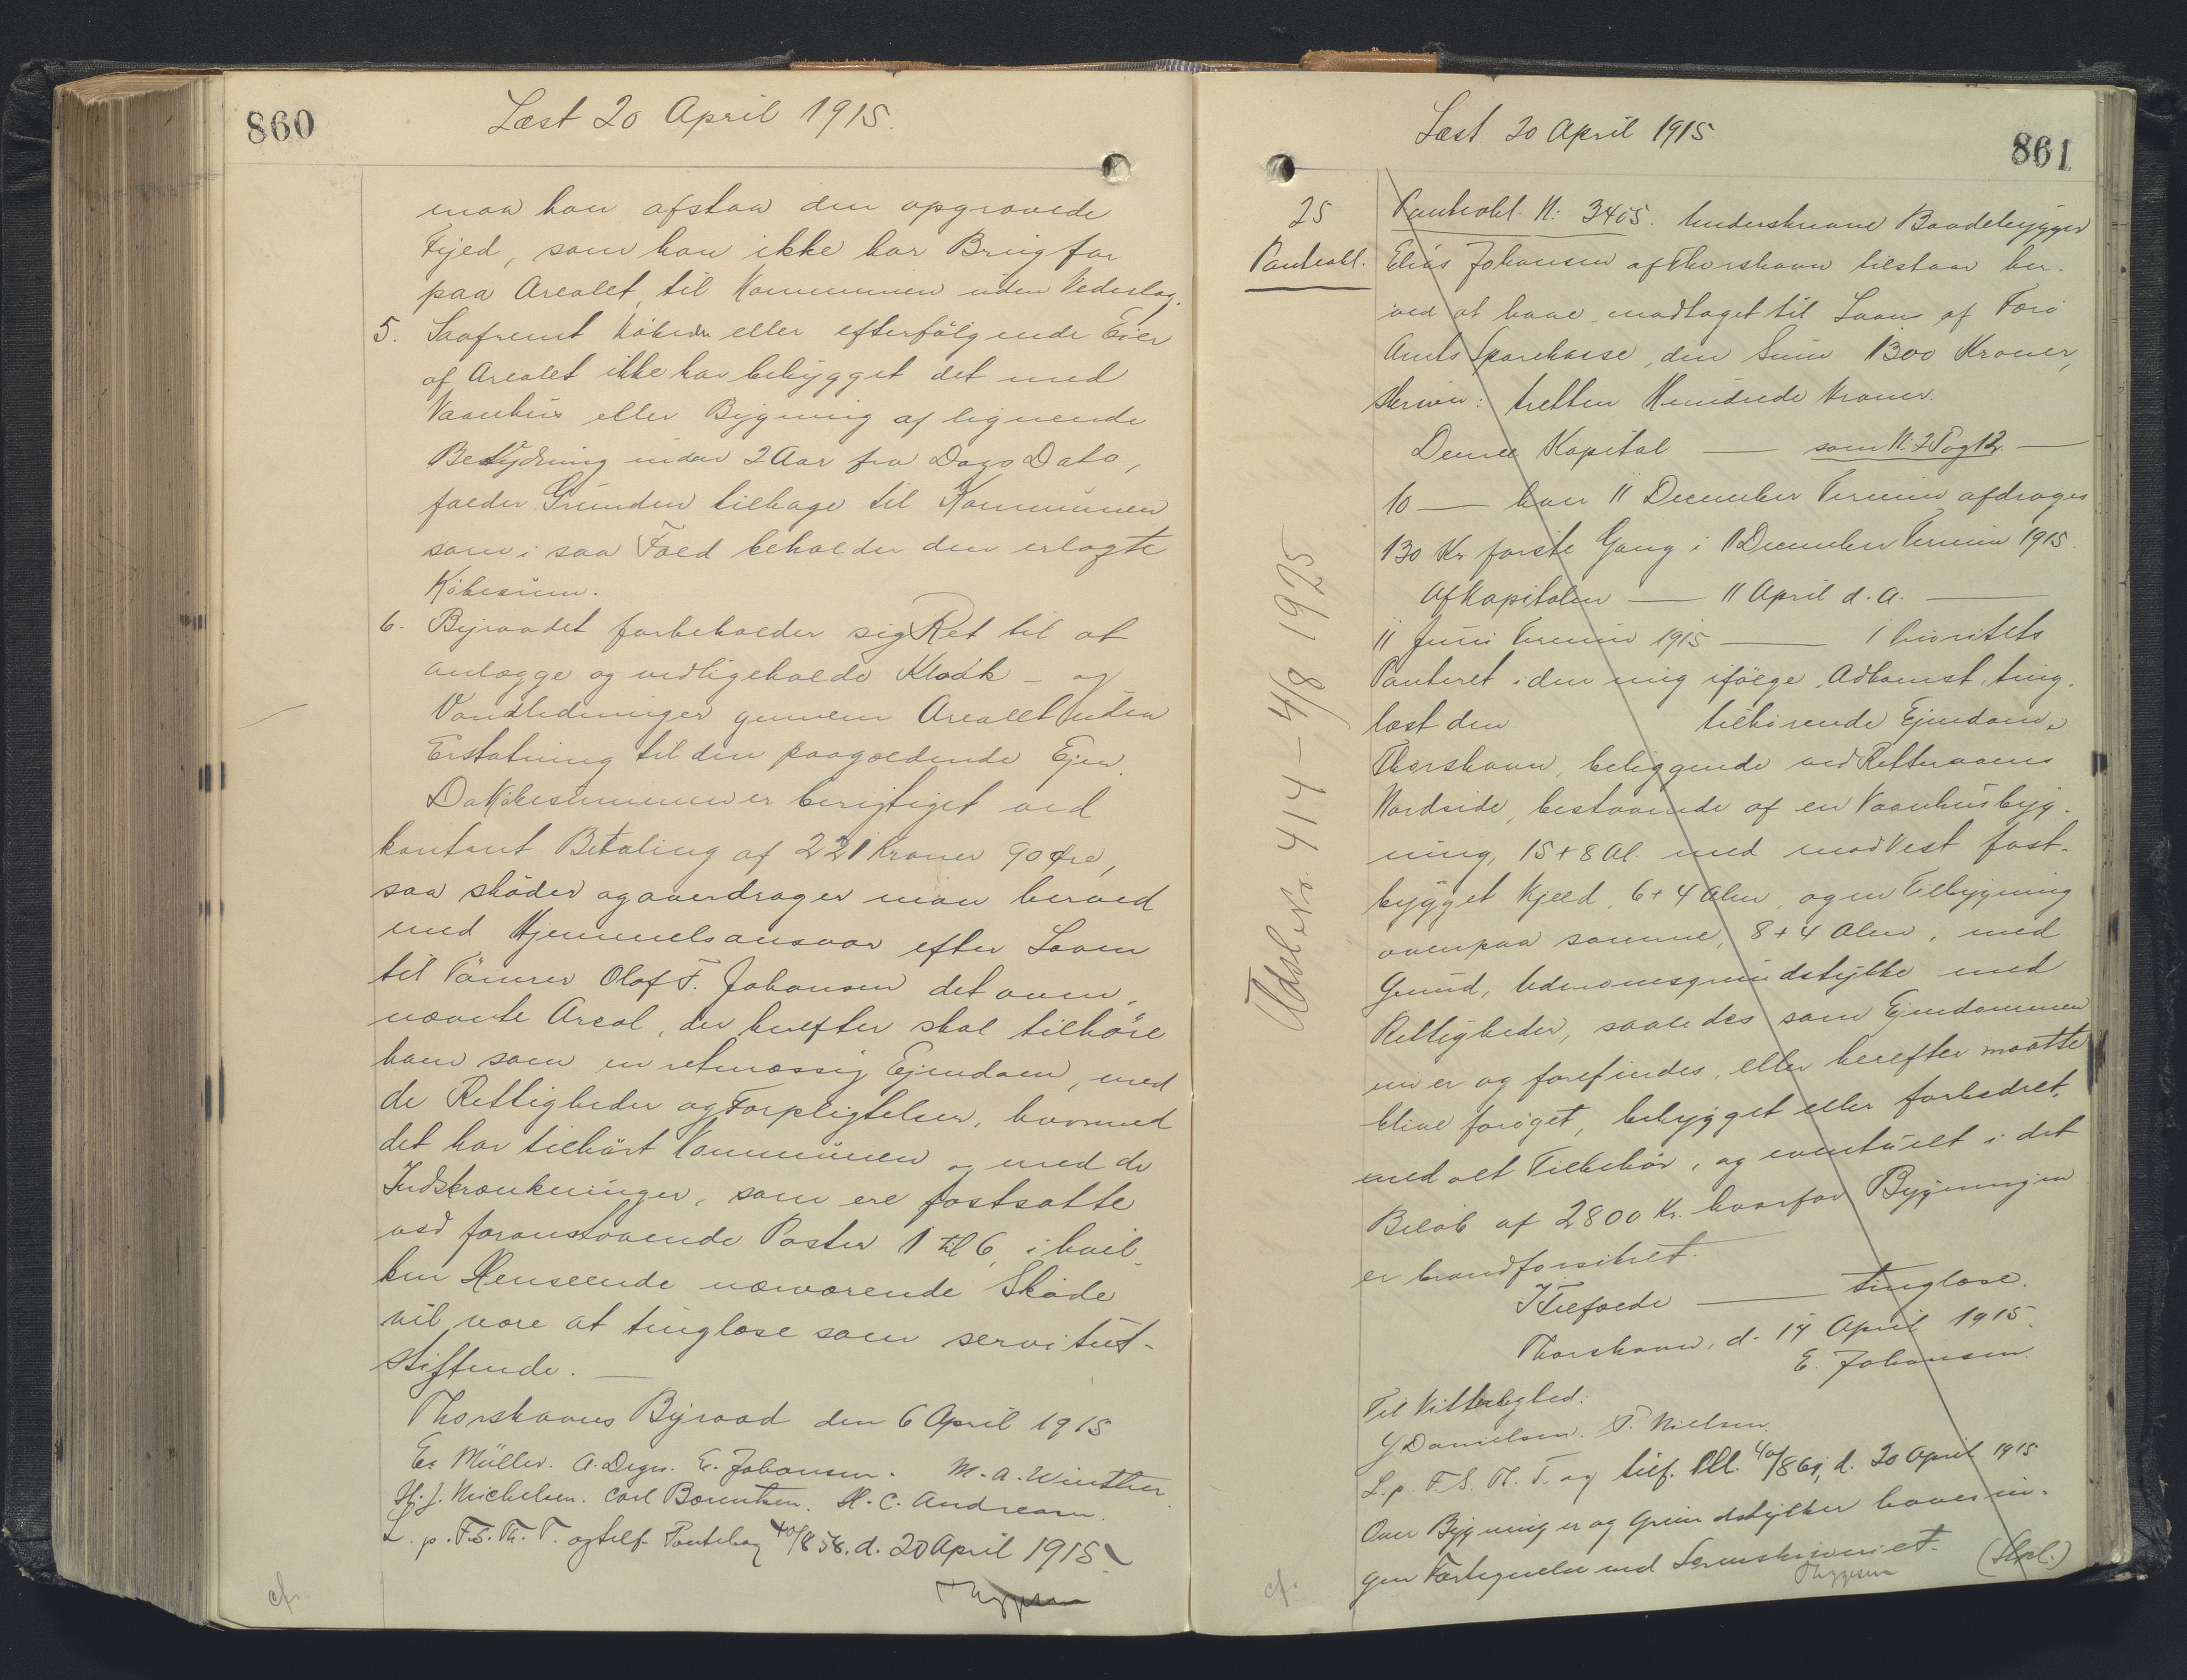 860
Læst 20 April 1915.
maa han afstaa den opgravede
Fyld, som han ikke har Brug for
paa Arealet, til Kommunen uden Vederlag.
5. Saafremt Køberen eller efterfølgende Eier
af Arealet ikke har bebygget det med
Vaanhus eller Bygning af lignende
Betydning inden 2 Aar fra Dags Dato,
falder Grunden tilbage til Kommunen
som i saa Fald beholder den erlagte
Købesum.
6. Byraadet forbeholder sig Ret til at
anlægge og vedligeholde Kloak- og
Vandledninger gennem Arealet uden
Erstatning til den paagældende Ejer.
Da Købesummen er berigtiget ved
kontant Betaling af 221 Kroner 90 Øre,
saa skøder og overdrager man herved
med Hjemmelsansvar efter Loven
til Tømrer Olaf F. Johansen det oven-
nævnte Areal, der herefter skal tilhøre
ham som en retmæssig Ejendom, med
de Rettigheder og Forpligtelser, hvormed
det har tilhørt Kommunen og med de
Indskrænkninger, som ere fastsatte
ved foranstaaende Poster 1 til 6, i hvil-
ken Henseende nærværende Skøde
vil være at tinglæse som servitut-
stiftende. —
Thorshavns Byraad den 6 April 1915
E. Müller. A. Degn. E. Johansen. M. A. Winther.
H. J. Michelsen. Carl Børentsen. H. C. Andreasen.
L. p. F. S. Th. T. og tilf. Pantebog 40/858. d. 20 April 1915.
cfr.
Læst 20 April 1915
861
25
Pantobl.
Udslet No. 414 – 4/8 1925
Pantobl. N: 3405. Underskrevne Baadebygger
Elias Johansen af Thorshavn tilstaar her-
ved at have modtaget til Laans af Færø
Amts Sparekasse, den Sum 1300 Kroner,
skriver: tretten Hundrede Kroner.
Denne Kapital — som N. 2 Pag 12 —
10 — hver 11 December Termin afdrages
130 Kr første Gang i 11 December Termin 1915.
Af Kapitalen — 11 April d. A. —
11 Juni Termin 1915 — 1 Prioritets
Panteret i den mig ifølge Adkomst, ting-
læst den tilhørende Ejendom i
Thorshavn, beliggende ved
Nordside, bestaaende af en Vaanhusbyg-
ning, 15 + 8 Al. med mod Vest fast-
bygget Kjeld, 6 + 4 Alen, og en Tilbygning
ovenpaa samme, 8 + 4 Alen, med
Grund, Udenomsgrundstykke med
Rettigheder, saaledes som Ejendommen
nu er og forefindes, eller herefter maatte
blive forøget, bebygget eller forbedret,
med alt Tilbehør, og eventuelt i det
Beløb af 2800 Kr. hvorfor Bygningen
er brandforsikret.
I Tilfælde — tinglæse.
Thorshavn, d. 14 April 1915.
E. Johansen.
Til Vitterlighed:
J Danielsen. P. Nielsen.
L. p. F. S. Th. T. og tilf. Pbl. 40/861, d. 20 April 1915
Over Bygninger og Grundstykker haves in-
gen Fortegnelse ved Sorenskriveriet.
cfr.